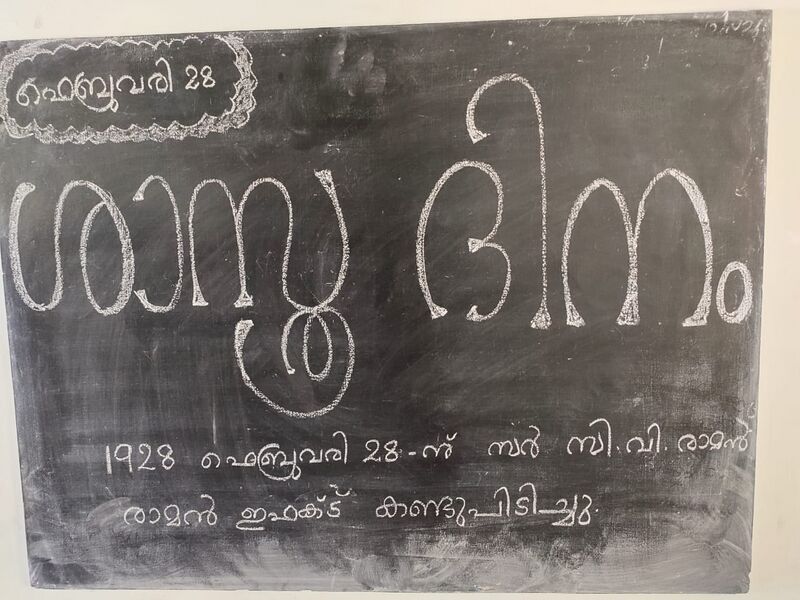 ഫെബ്രുവരി 28
ശാസ്ത്ര ദിനം
1928 ഫെബ്രുവരി 28-ന് സർ സി.വി. രാമൻ
രാമൻ ഇഫക്ട് കണ്ടുപിടിച്ചു.